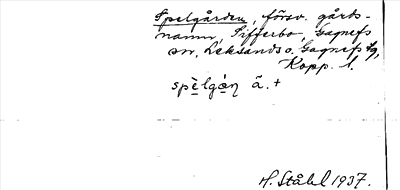 Spelgården, försv. gårds-
namn, Sifferbo, Gagnefs
sn, Leksands o. Gagnefs tg,
Kopp. l.
spèlgáṇ ã. +
H. Ståhl 1937.